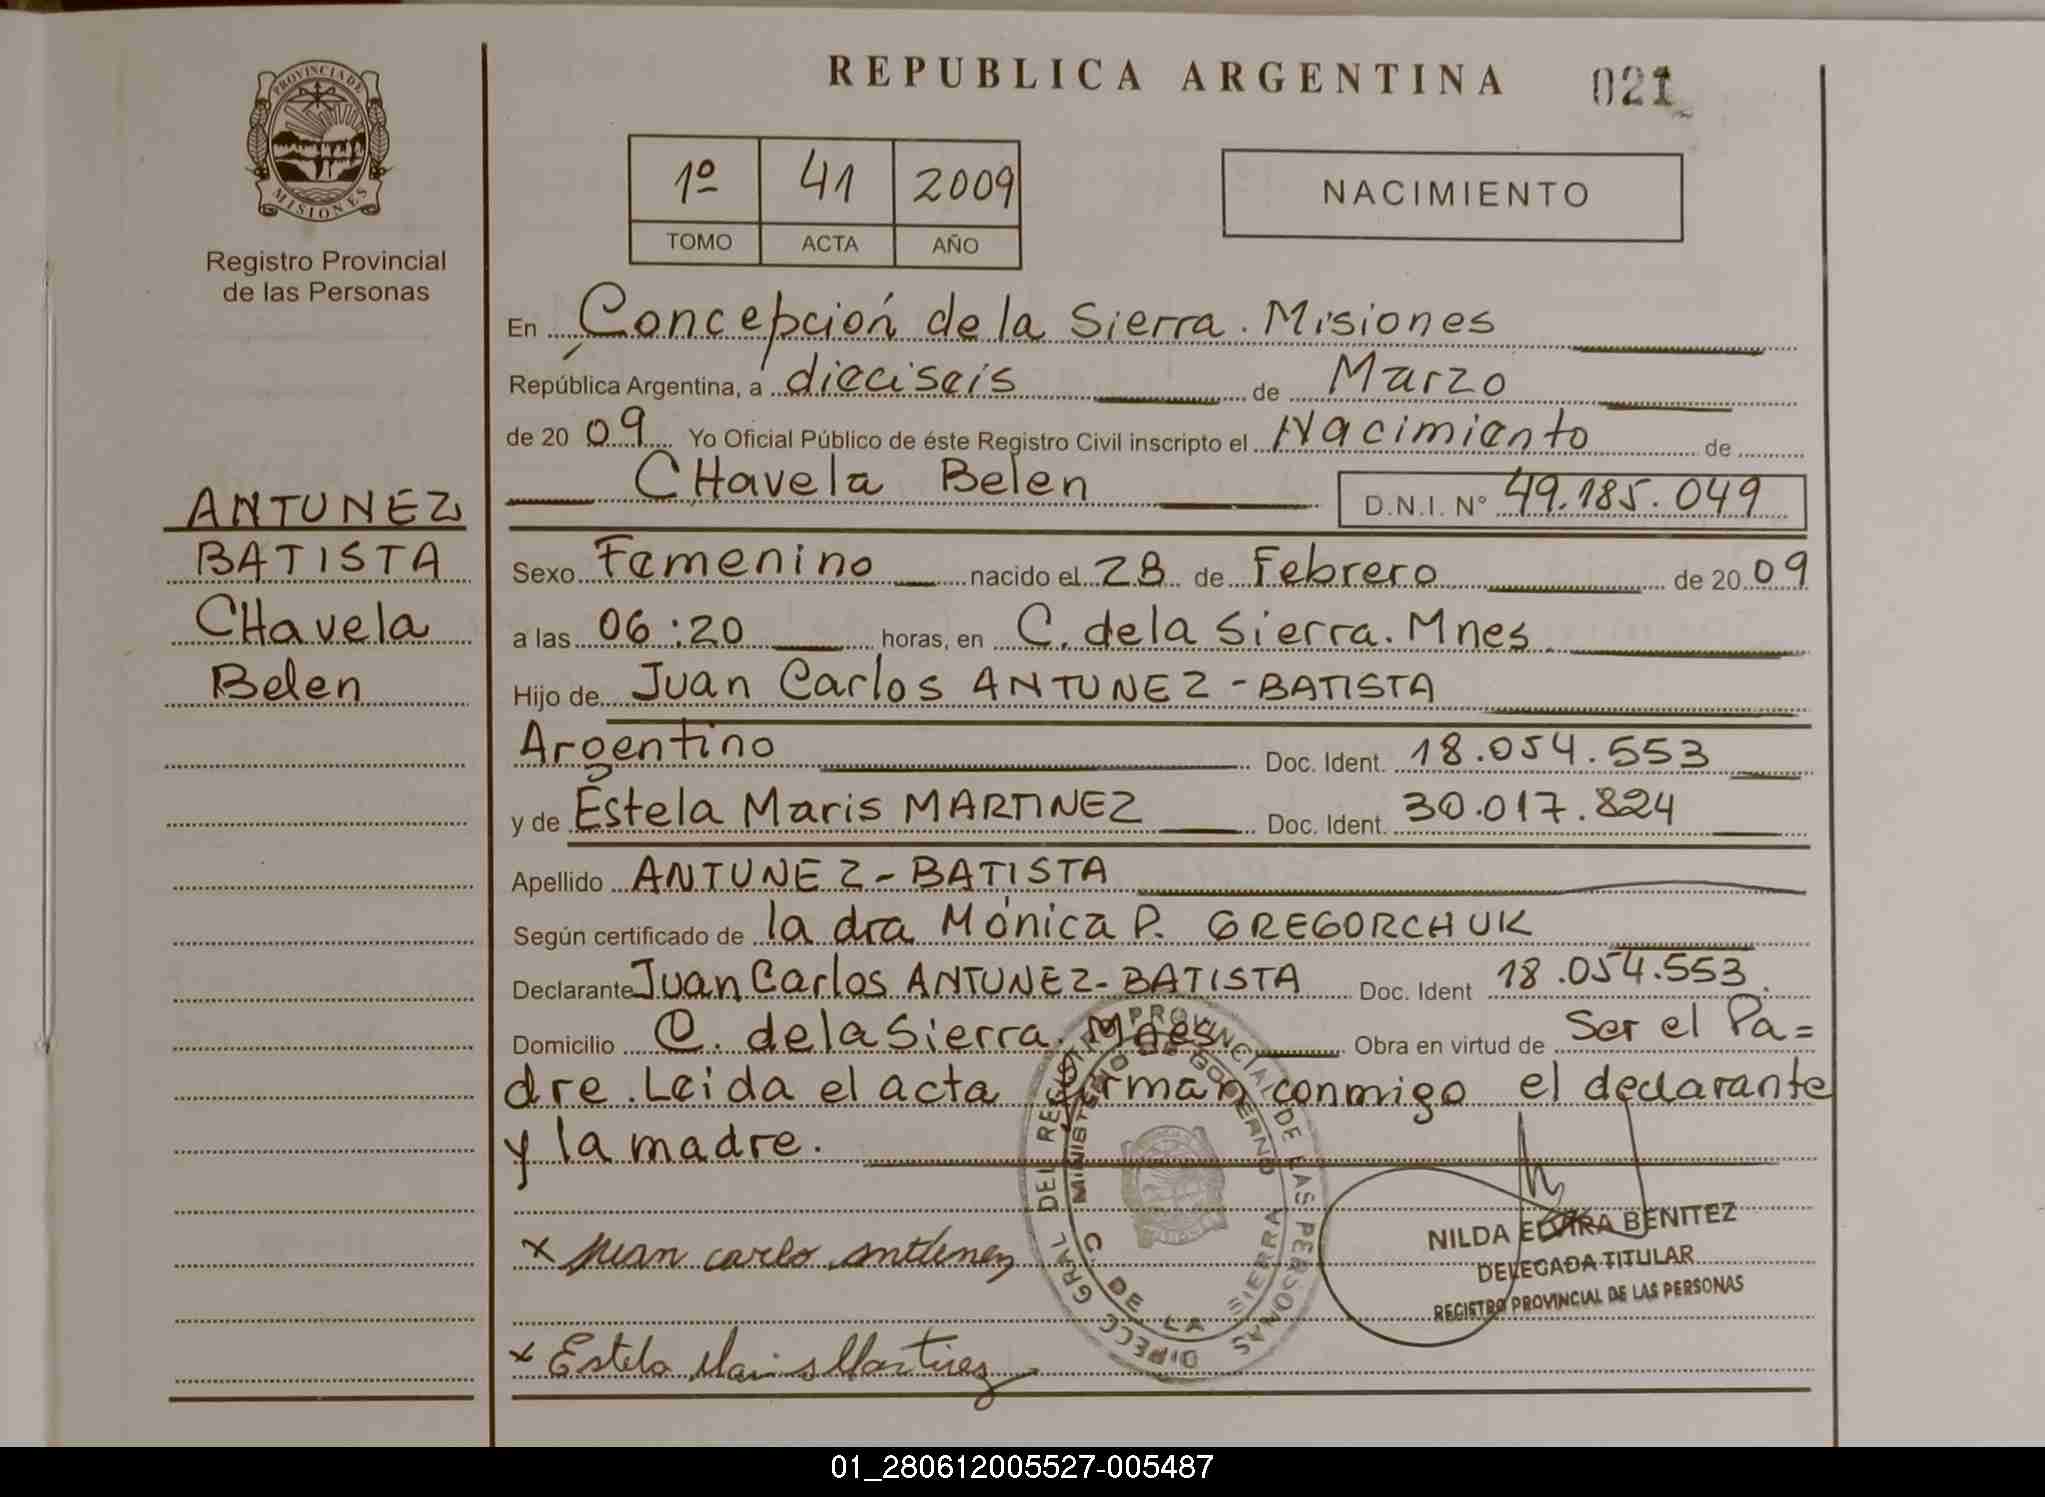 REPUBLICA ARGENTINA 021
PROVINCIA DE MISIONES
Registro Provincial
de las Personas
1º 41 2009
TOMO ACTA AÑO
NACIMIENTO
En Concepción de la Sierra. Misiones
República Argentina, a dieciseis de Marzo
de 2009 Yo Oficial Público de éste Registro Civil inscripto el Nacimiento de
CHavela Belen D.N.I. Nº 49.185.049
ANTUNEZ
BATISTA
CHavela
Belen
Sexo Femenino nacido el 28 de Febrero de 2009
a las 06:20 horas, en C. de la Sierra. Mnes.
Hijo de Juan Carlos ANTUNEZ-BATISTA
Argentino Doc. Ident. 18.054.553
y de Estela Maris MARTINEZ Doc. Ident. 30.017.824
Apellido ANTUNEZ-BATISTA
Según certificado de la dra Mónica P. GREGORCHUK
Declarante Juan Carlos ANTUNEZ-BATISTA Doc. Ident 18.054.553.
Domicilio C. de la Sierra. Mnes Obra en virtud de Ser el Pa=
dre. Leida el acta firman conmigo el declarante
y la madre.
DIRECC GRAL DEL REGISTRO PROVINCIAL DE LAS PERSONAS
MINISTERIO DE GOBIERNO
C DE LA SIERRA
NILDA ELVIRA BENITEZ
DELEGADA TITULAR
REGISTRO PROVINCIAL DE LAS PERSONAS
x Juan carlo antunez
x Estela Maris Martinez
01_280612005527-005487